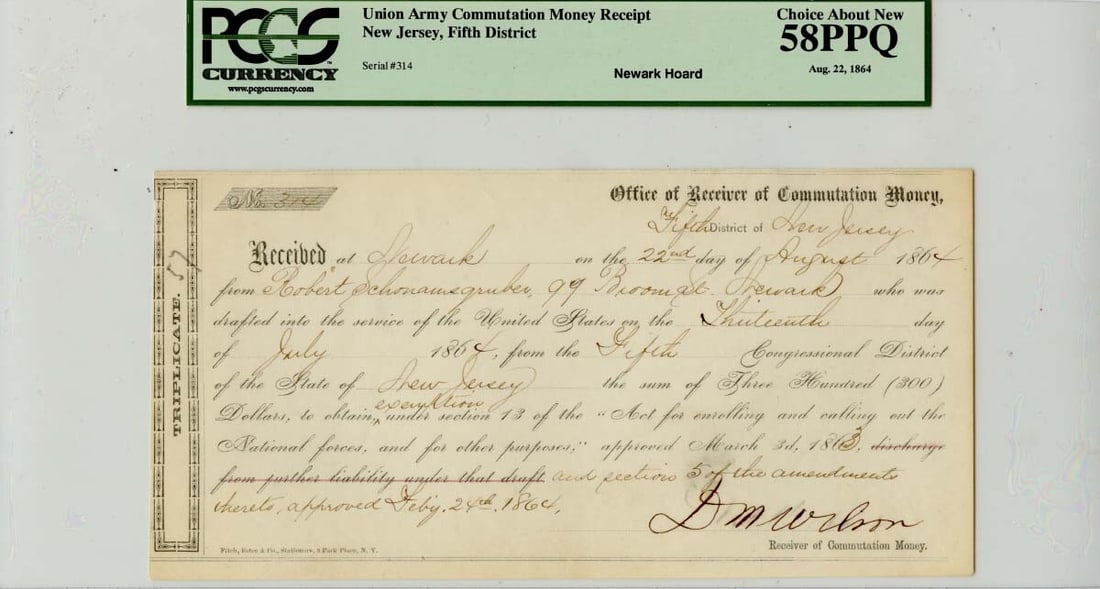 PCGS CURRENCY
www.pcgscurrency.com
Union Army Commutation Money Receipt
New Jersey, Fifth District
Serial #314
Newark Hoard
Choice About New
58PPQ
Aug. 22, 1864
TRIPLICATE.
57
No. 314
Office of Receiver of Commutation Money,
Fifth District of New Jersey
Received at Newark on the 22nd day of August 1864
from Robert Schonamsgruber, 99 Broom St. Newark who was
drafted into the service of the United States on the Thirteenth day
of July 1864, from the Fifth Congressional District
of the State of New Jersey the sum of Three Hundred (300)
exemption
Dollars, to obtain, under section 13 of the "Act for enrolling and calling out the
National forces, and for other purposes;" approved March 3d, 1863, discharge
from further liability under that draft and section 5 of the amendments
thereto, approved Feby. 24th, 1864.
D M Wilson
Receiver of Commutation Money.
Fitch, Estee & Co., Stationers, 3 Park Place, N. Y.